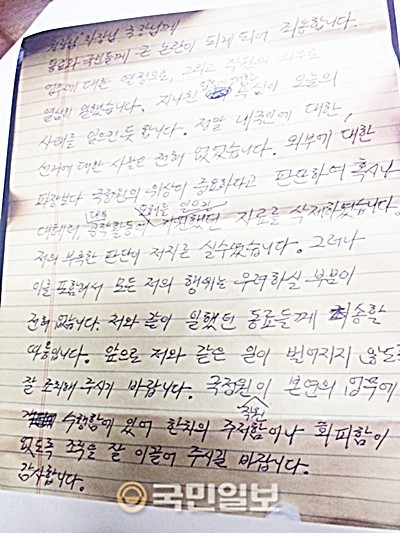 원장님, 차장님, 국장님께
동료와 국민들께 큰 논란이 되게 되어 죄송합니다.
업무에 대한 열정으로, 그리고 직원의 의무로
열심히 일했습니다. 지나친 업무에 대한 욕심이 오늘의
사태를 일으킨 듯 합니다. 정말 내국인에 대한,
선거에 대한 사찰은 전혀 없었습니다. 외부에 대한
파장보다 국정원의 위상이 중요하다고 판단하여 혹시나
대테러, 대북 공작활동에 오해를 일으킨 지원했던 자료를 삭제하였습니다.
저의 부족한 판단이 저지른 실수였습니다. 그러나
이를 포함해서 모든 저의 행위는 우려하실 부분이
전혀 없습니다. 저와 같이 일했던 동료들께 죄송할
따름입니다. 앞으로 저와 같은 일이 벌어지지 않도록
잘 조치해 주시기 바랍니다. 국정원 직원이 본연의 업무에
수행함에 있어 한치의 주저함이나 회피함이
없도록 조직을 잘 이끌어 주시길 바랍니다.
감사합니다.
국민일보